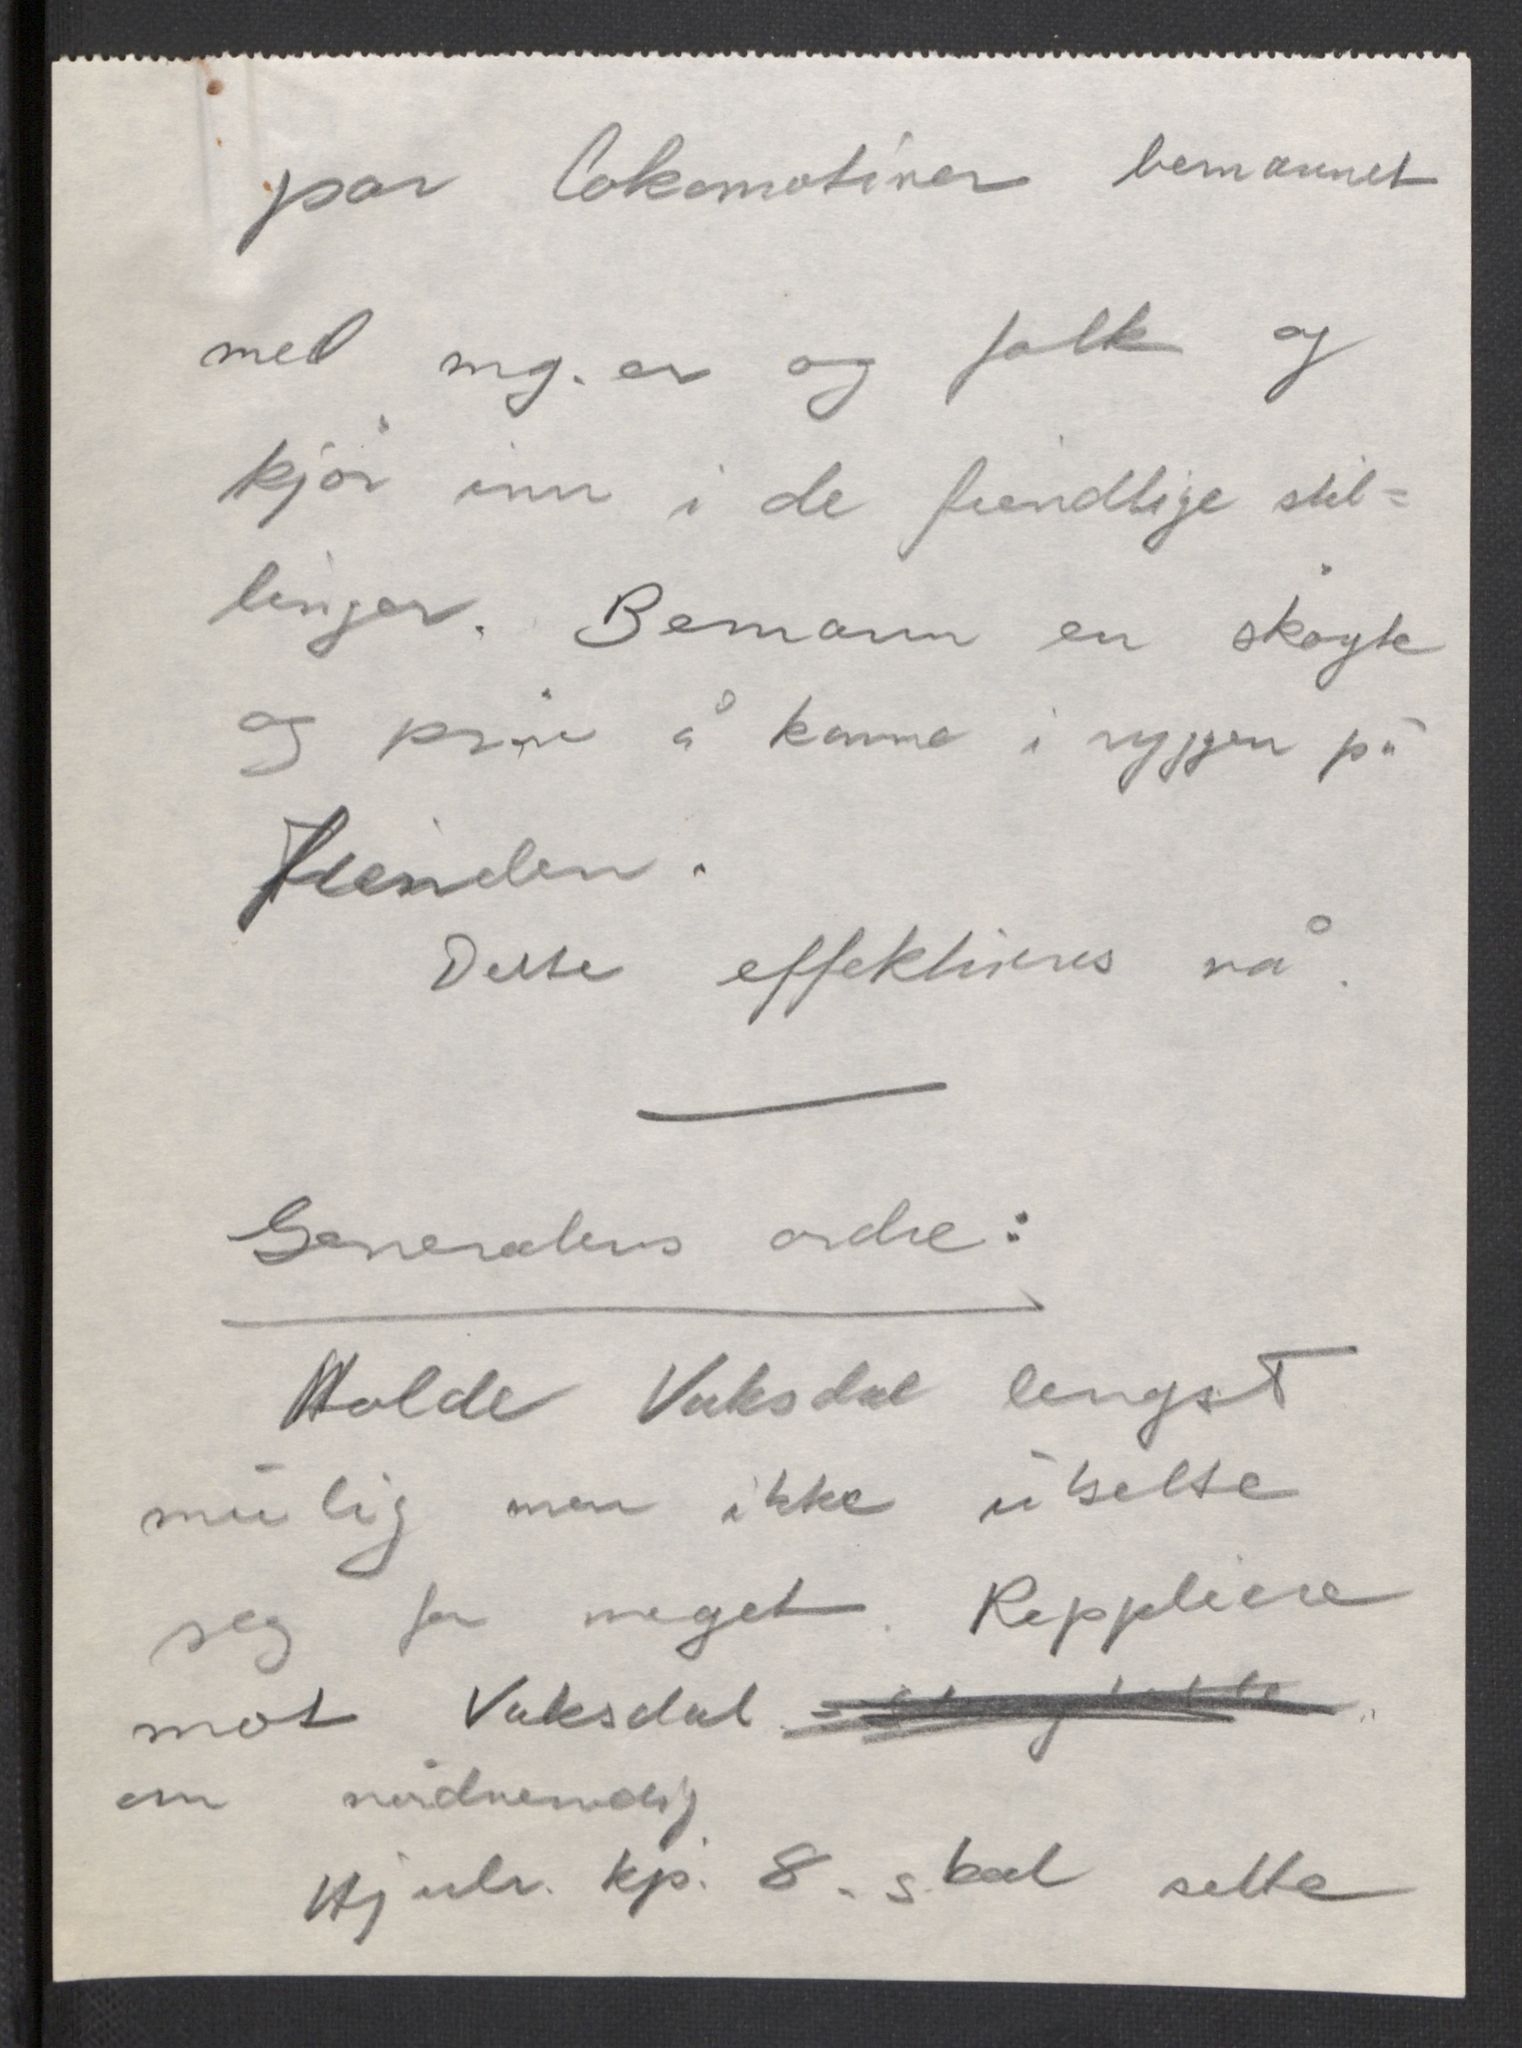 par lokomotiver bemannet
med mg.er og folk og
kjør inn i de fiendtlige stil=
linger. Bemann en skøyte
og prøv å komme i ryggen på
fienden.
Dette effektueres nå.
Generalens ordre:
Holde Vaksdal lengst
mulig men ikke utsette
seg for meget. Reppliere
mot Vaksdal
om nødvendig
Hjulr. kp. 8. skal sette